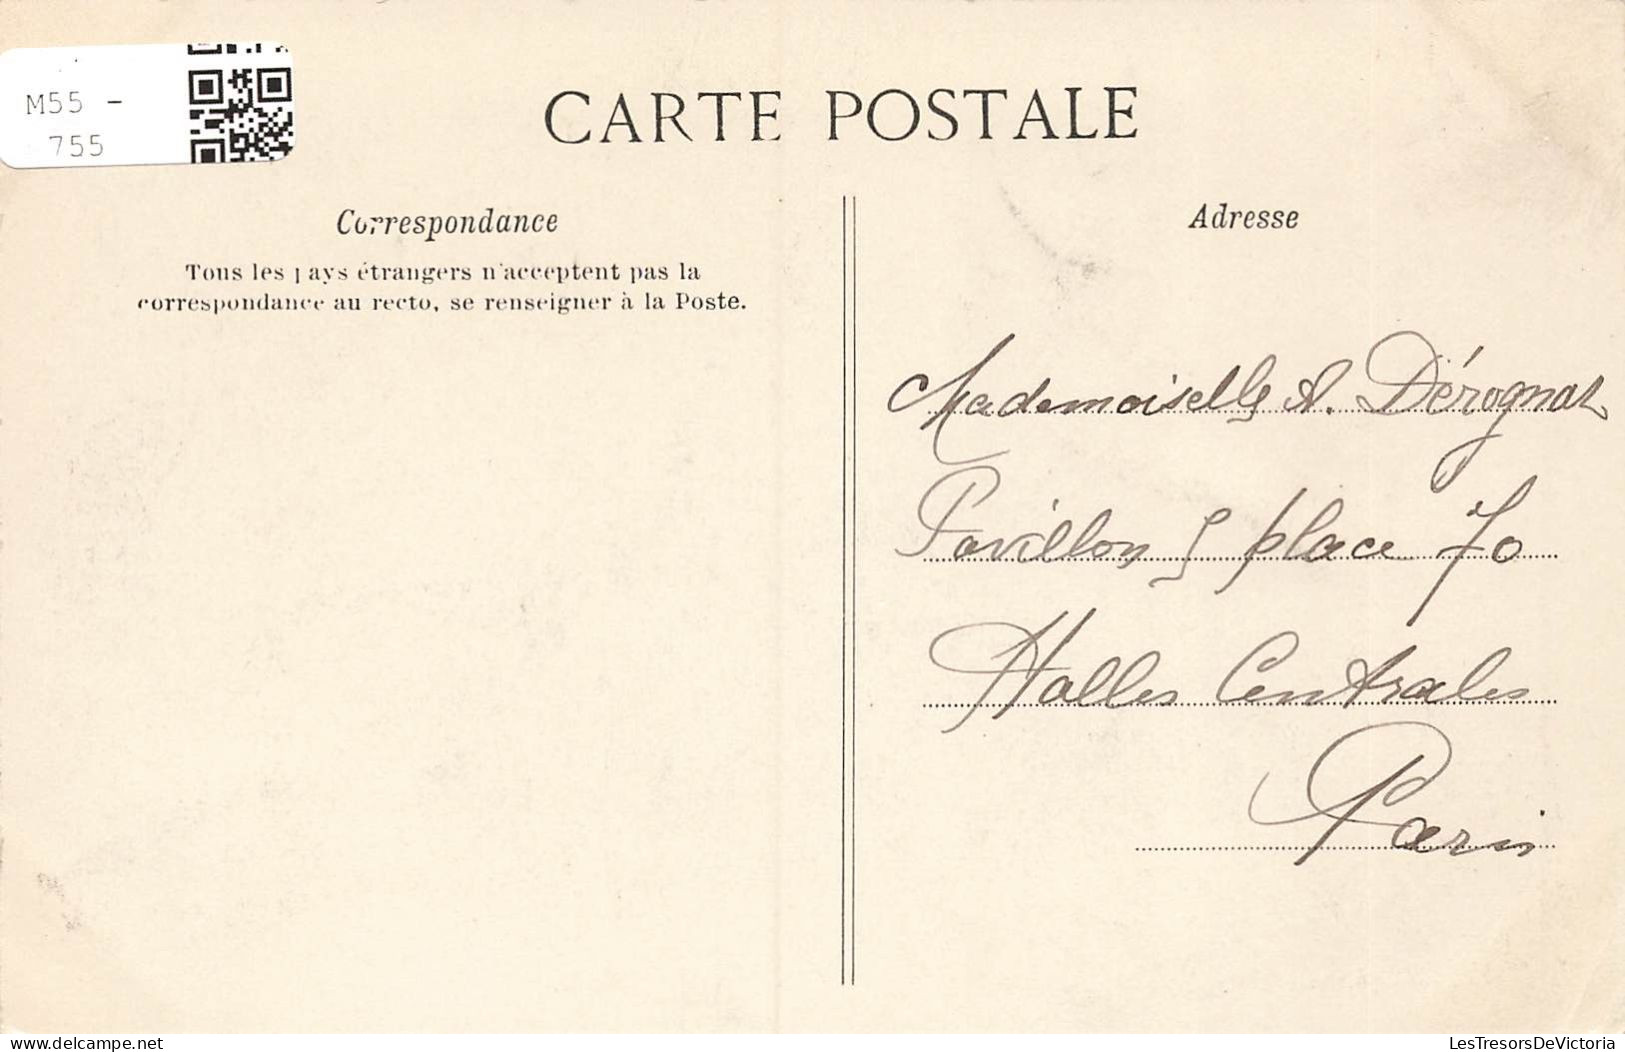 M55 -
755
CARTE POSTALE
Correspondance
Tous les pays étrangers n'acceptent pas la
correspondance au recto, se renseigner à la Poste.
Adresse
Mademoiselle A. Dérognat
Pavillon 5 place 70
Halles Centrales
Paris
LesTresorsDeVictoria
LesTresorsDeVictoria.com